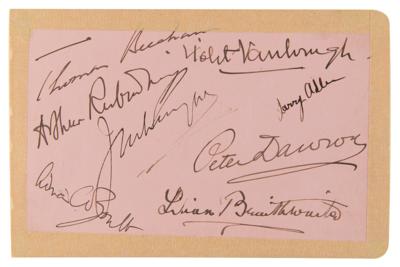 Thomas Beecham
Violet Vanbrugh
Arthur Rubinstein
Larry Adler
Peter Dawson
Adrian C Boult
Lilian Braithwaite